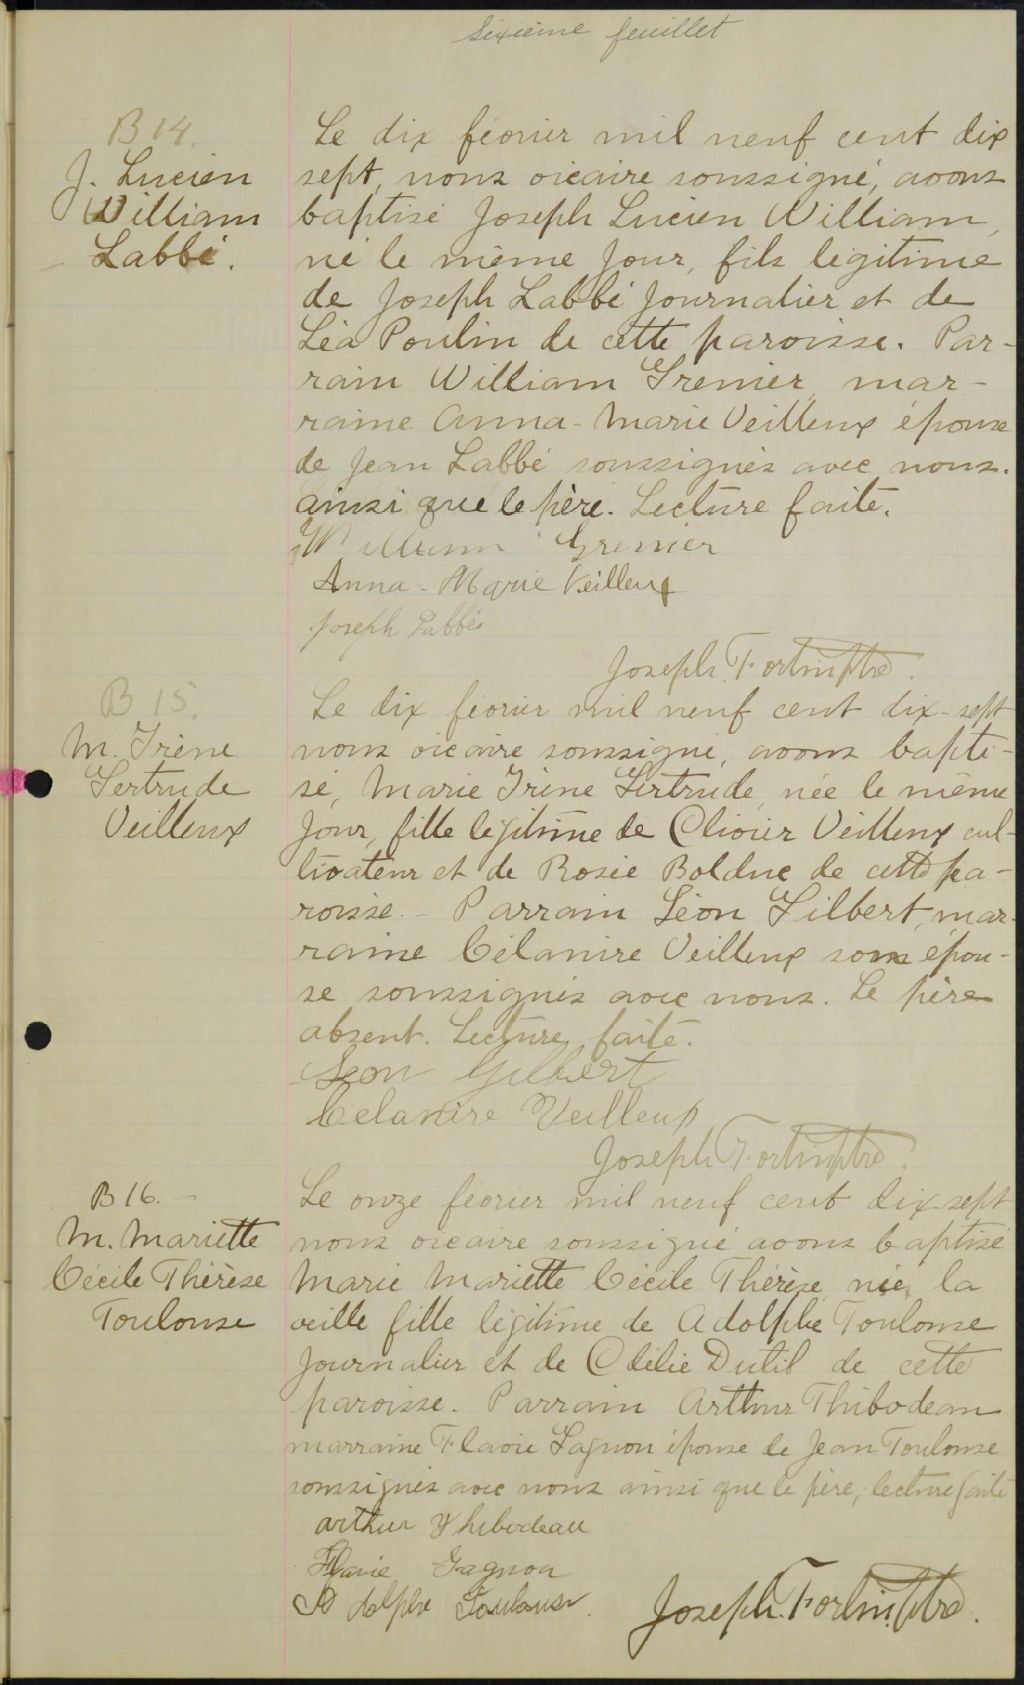 Sixième feuillet
B 14.
J. Lucien
William
Labbé.
Le dix février mil neuf cent dix
sept, nous vicaire soussigné, avons
baptisé Joseph Lucien William,
né le même jour, fils légitime
de Joseph Labbé journalier et de
Léa Poulin de cette paroisse. Par-
rain William Grenier, mar-
raine Anna-Marie Veilleux épouse
de Jean Labbé soussignés avec nous.
ainsi que le père. Lecture faite.
William Grenier
Anna-Marie Veilleux
Joseph Labbé
Joseph Fortin ptre.
B 15.
M. Irène
Gertrude
Veilleux
Le dix février mil neuf cent dix-sept
nous vicaire soussigné, avons bapti-
sé, Marie Irène Gertrude, née le même
jour, fille légitime de Olivier Veilleux cul-
tivateur et de Rosée Bolduc de cette pa-
roisse. - Parrain Léon Gilbert, mar-
raine Célanire Veilleux son épou-
se soussignés avec nous. Le père
absent. Lecture faite.
Léon Gilbert
Célanire Veilleux
Joseph Fortin ptre.
B 16. -
M. Mariette
Cécile Thérèse
Toulouse
Le onze février mil neuf cent dix-sept
nous vicaire soussigné avons baptisé
Marie Mariette Cécile Thérèse, née, la
veille fille légitime de Adolphe Toulouse
journalier et de Odélie Dutil de cette
paroisse. Parrain Arthur Thibodeau
marraine Flavie Gagnon épouse de Jean Toulouse
soussignés avec nous ainsi que le père, lecture faite
arthur Thibodeau
Flavie Gagnon
Adolphe Toulouse.
Joseph Fortin, ptre.